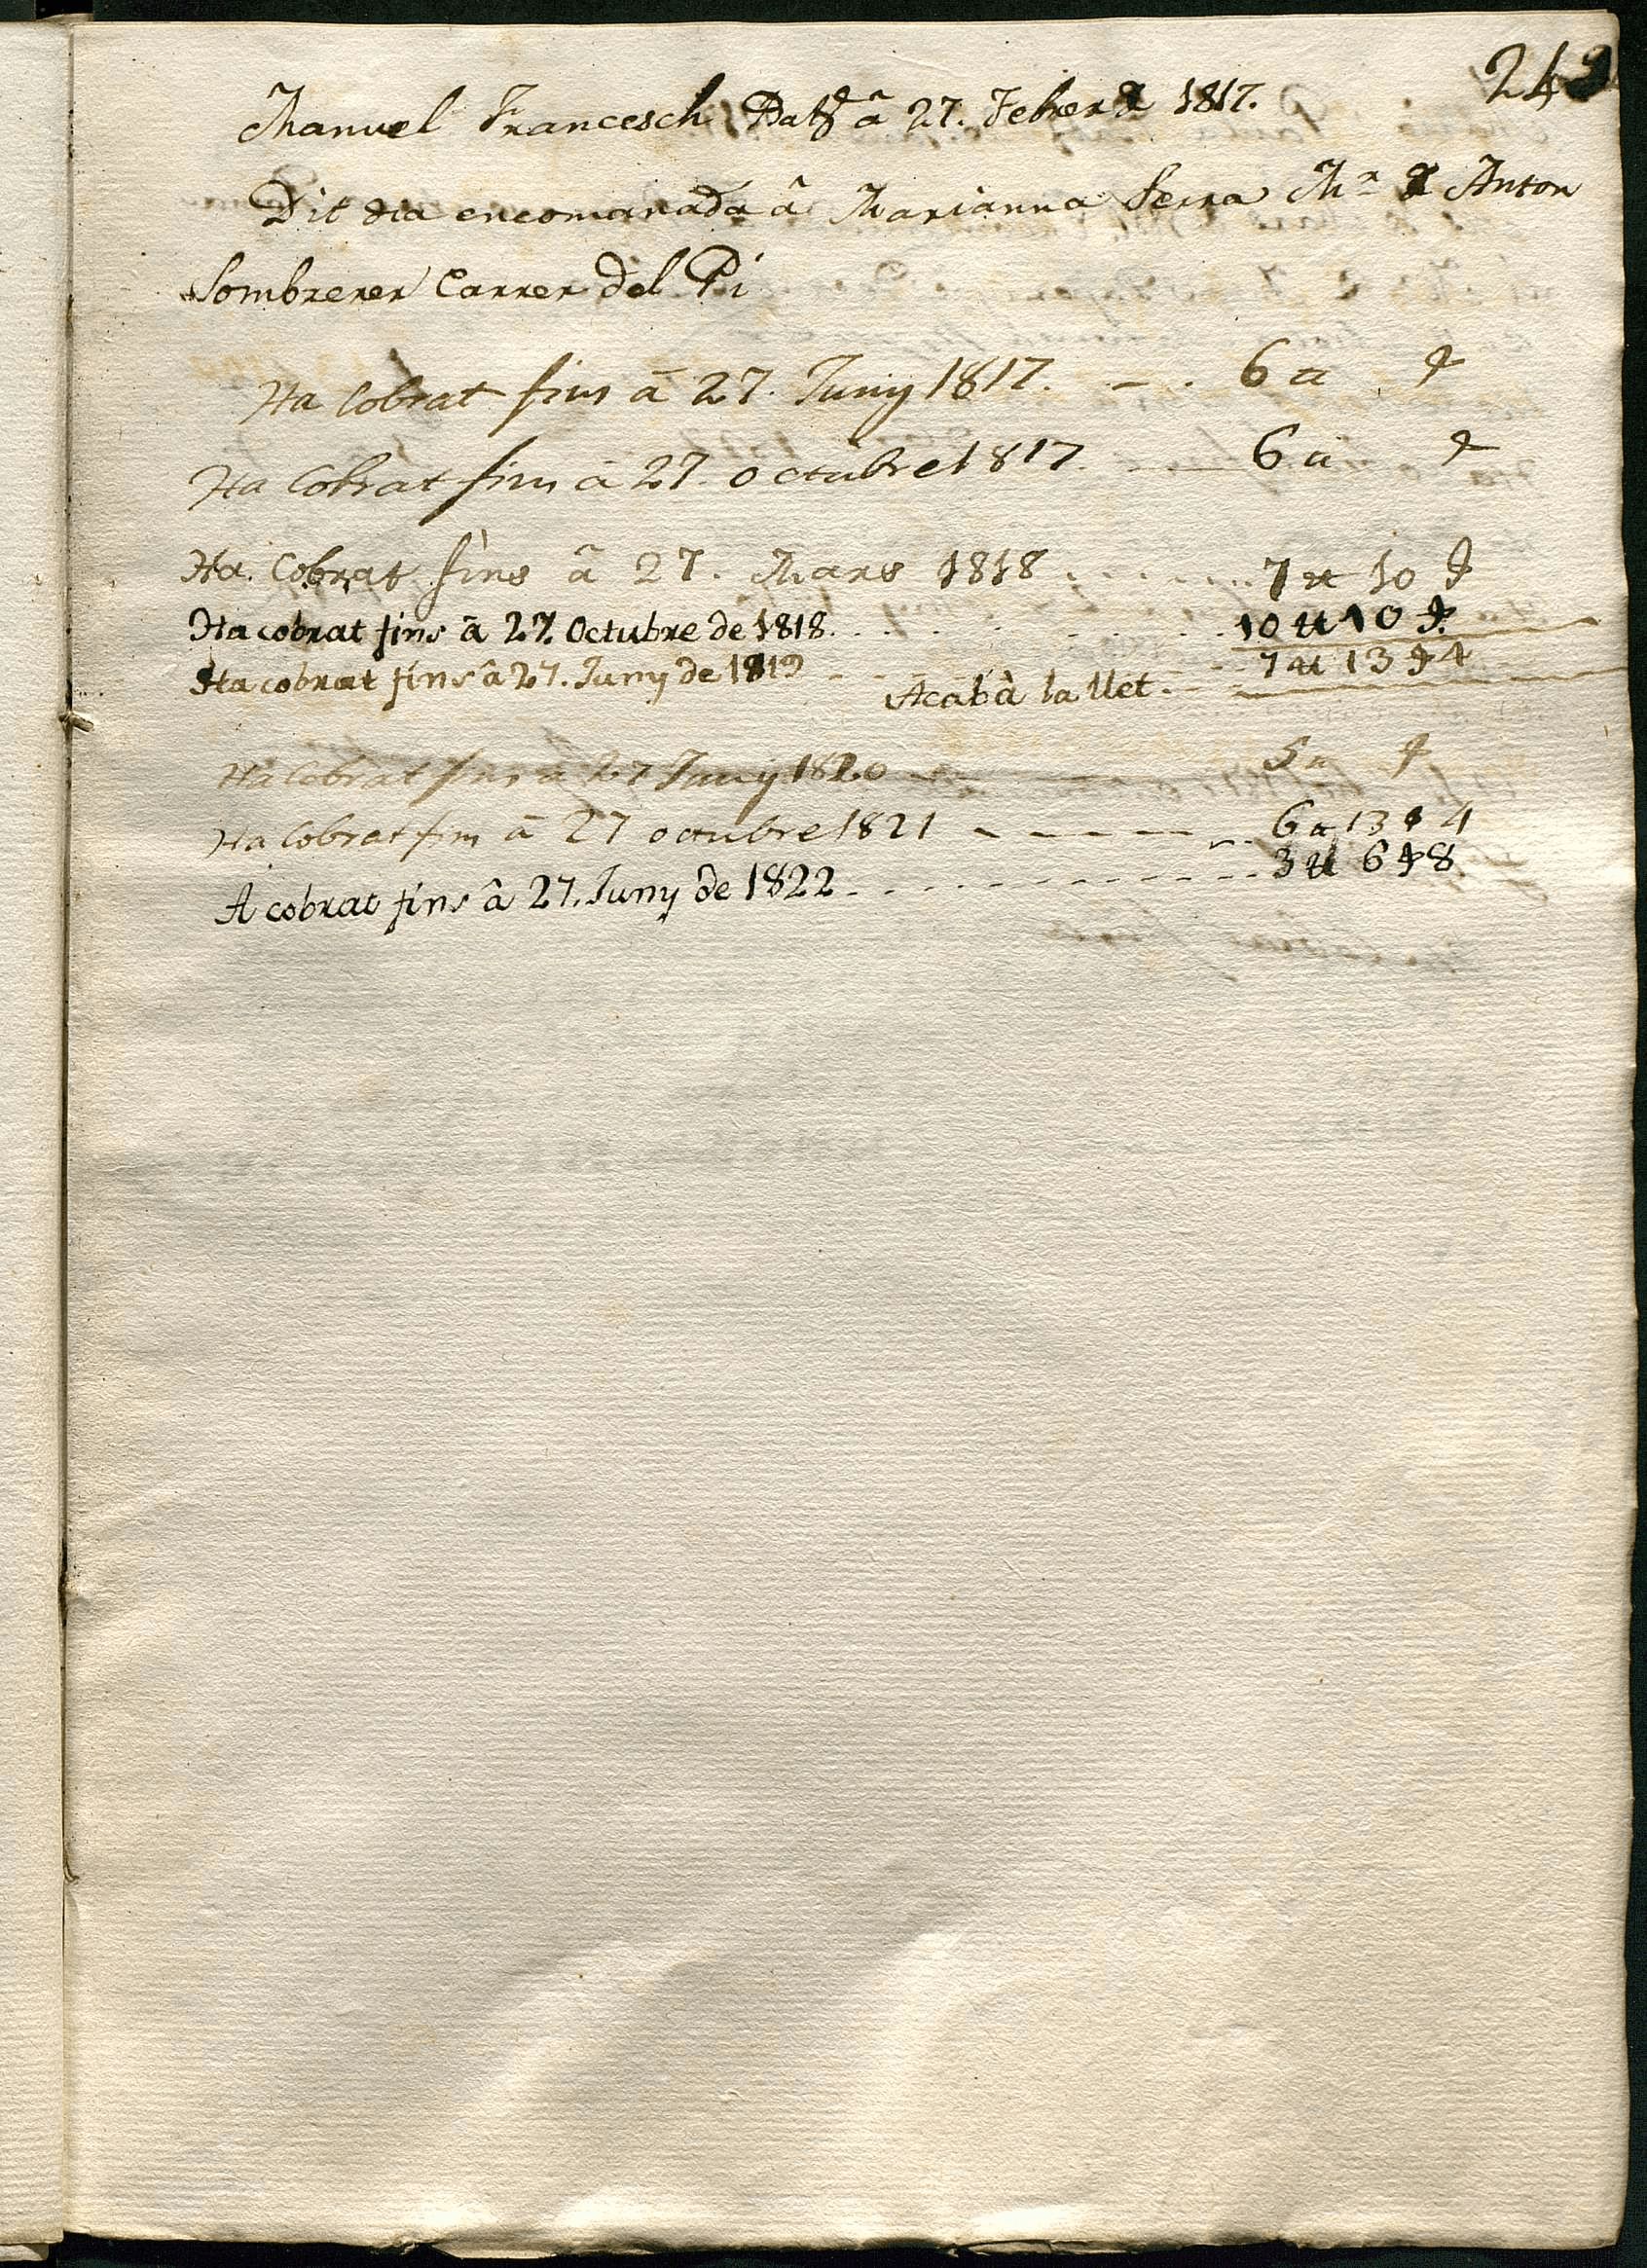 249
Manuel Francesch Batȝ.ᵗ â 27. Febrer de 1817.
Dit dia encomanada â Marianna Serra Mª de Anton
Sombrerer Carrer del Pi
Ha Cobrat fins â 27. Juny 1817. - . 6 tt ß
Ha Cobrat fins â 27. octubre 1817. — 6 tt ß
Ha Cobrat fins â 27. Mars 1818 . . . . 7 tt 10 ß
Ha cobrat fins â 27. Octubre de 1818. . . . . . . . 10 tt 10 ß.
Ha cobrat fins â 27. Juny de 1819 - - - - 7 tt 13 ß 4
Acabâ la llet.
Ha Cobrat fins a 27 Juny 1820 — 5 tt ß
Ha Cobrat fins â 27 octubre 1821 - - - - - 6 tt 13 ß 4
A cobrat fins â 27. Juny de 1822 - - - - - - - - 3 tt 6 ß 8.